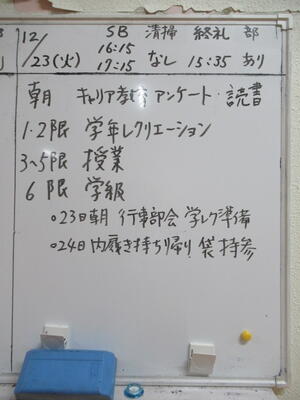 12/23(火) SB 16:15 17:15 清掃 なし 終礼 15:35 部 あり
朝 キャリア教育アンケート・読書
1・2限 学年レクリエーション
3~5限 授業
6限 学級
○23日朝 行事部会 学レク準備
○24日内履き持ち帰り 袋持参